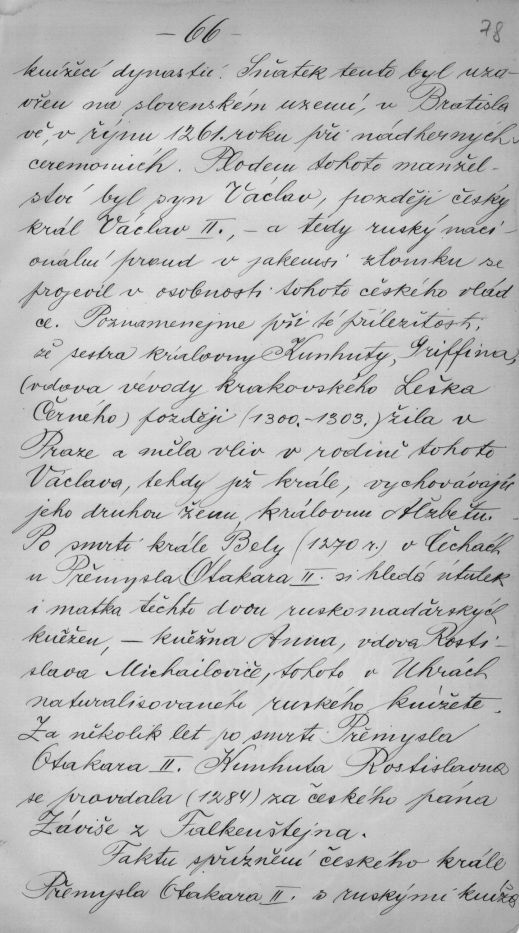 — 66 —
78
knížecí dynastií. Sňatek tento byl uza-
vřen na slovenském uzemí, v Bratisla
vě, v říjnu 1261. roku při nádherných
ceremoniích. Plodem tohoto manžel-
ství byl syn Václav, později český
král Václav II., — a tedy ruský naci-
onální proud v jakemsi zlomku se
projevil v osobnosti tohoto českého vlád
ce. Poznamenejme při té příležitosti,
že sestra královny Kunhuty, Griffina,
(vdova vévody krakovského Leška
Černého) později (1300.-1303.) žila v
Praze a měla vliv v rodině tohoto
Václava, tehdy již krále, vychovávajíc
jeho druhou ženu, královnu Alžbetu.
Po smrti krále Bely (1270 r.) v Čechách
u Přemysla Otakara II. si hledá útulek
i matka těchto dvou ruskomaďárských
kněžen, — kněžna Anna, vdova Rosti-
slava Michailoviče, tohoto v Uhrách
naturalisovaného ruského knížete.
Za několik let po smrti Přemysla
Otakara II. Kunhuta Rostislavna
se provdala (1284) za českého pána
Záviše z Falkenštejna.
Faktu spříznění českého krále
Přemysla Otakara II. s ruskými kníža